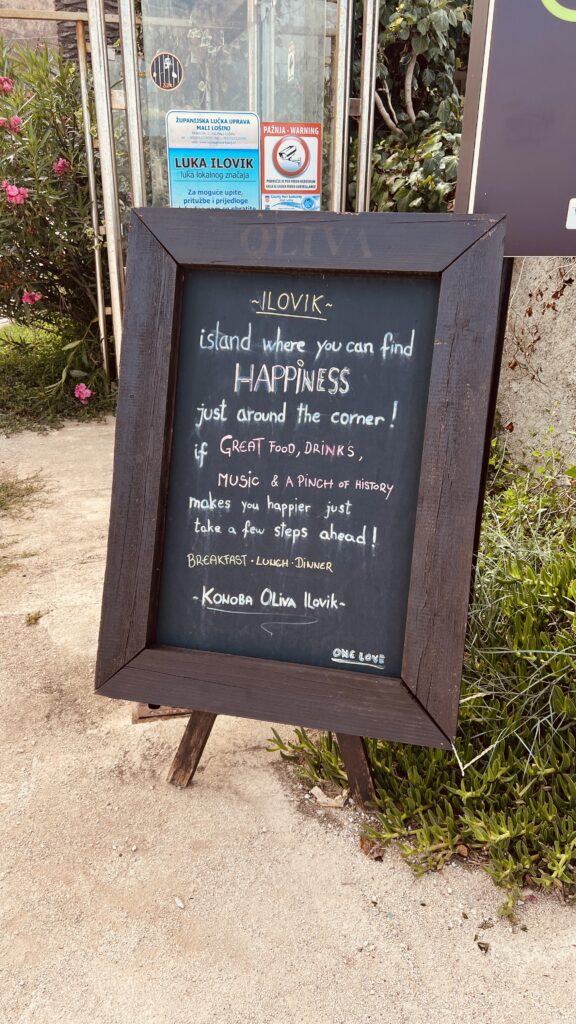 ŽUPANIJSKA LUČKA UPRAVA
MALI LOŠINJ
LUKA ILOVIK
luka lokalnog značaja
Za moguće upite,
pritužbe i prijedloge
PAŽNJA - WARNING
OLIVA
~ILOVIK~
island where you can find
HAPPINESS
just around the corner!
if GREAT FOOD, DRINKS,
MUSIC & A PINCH OF HISTORY
makes you happier just
take a few steps ahead!
BREAKFAST · LUNCH · DINNER
~ KONOBA OLIVA ILOVIK ~
ONE LOVE